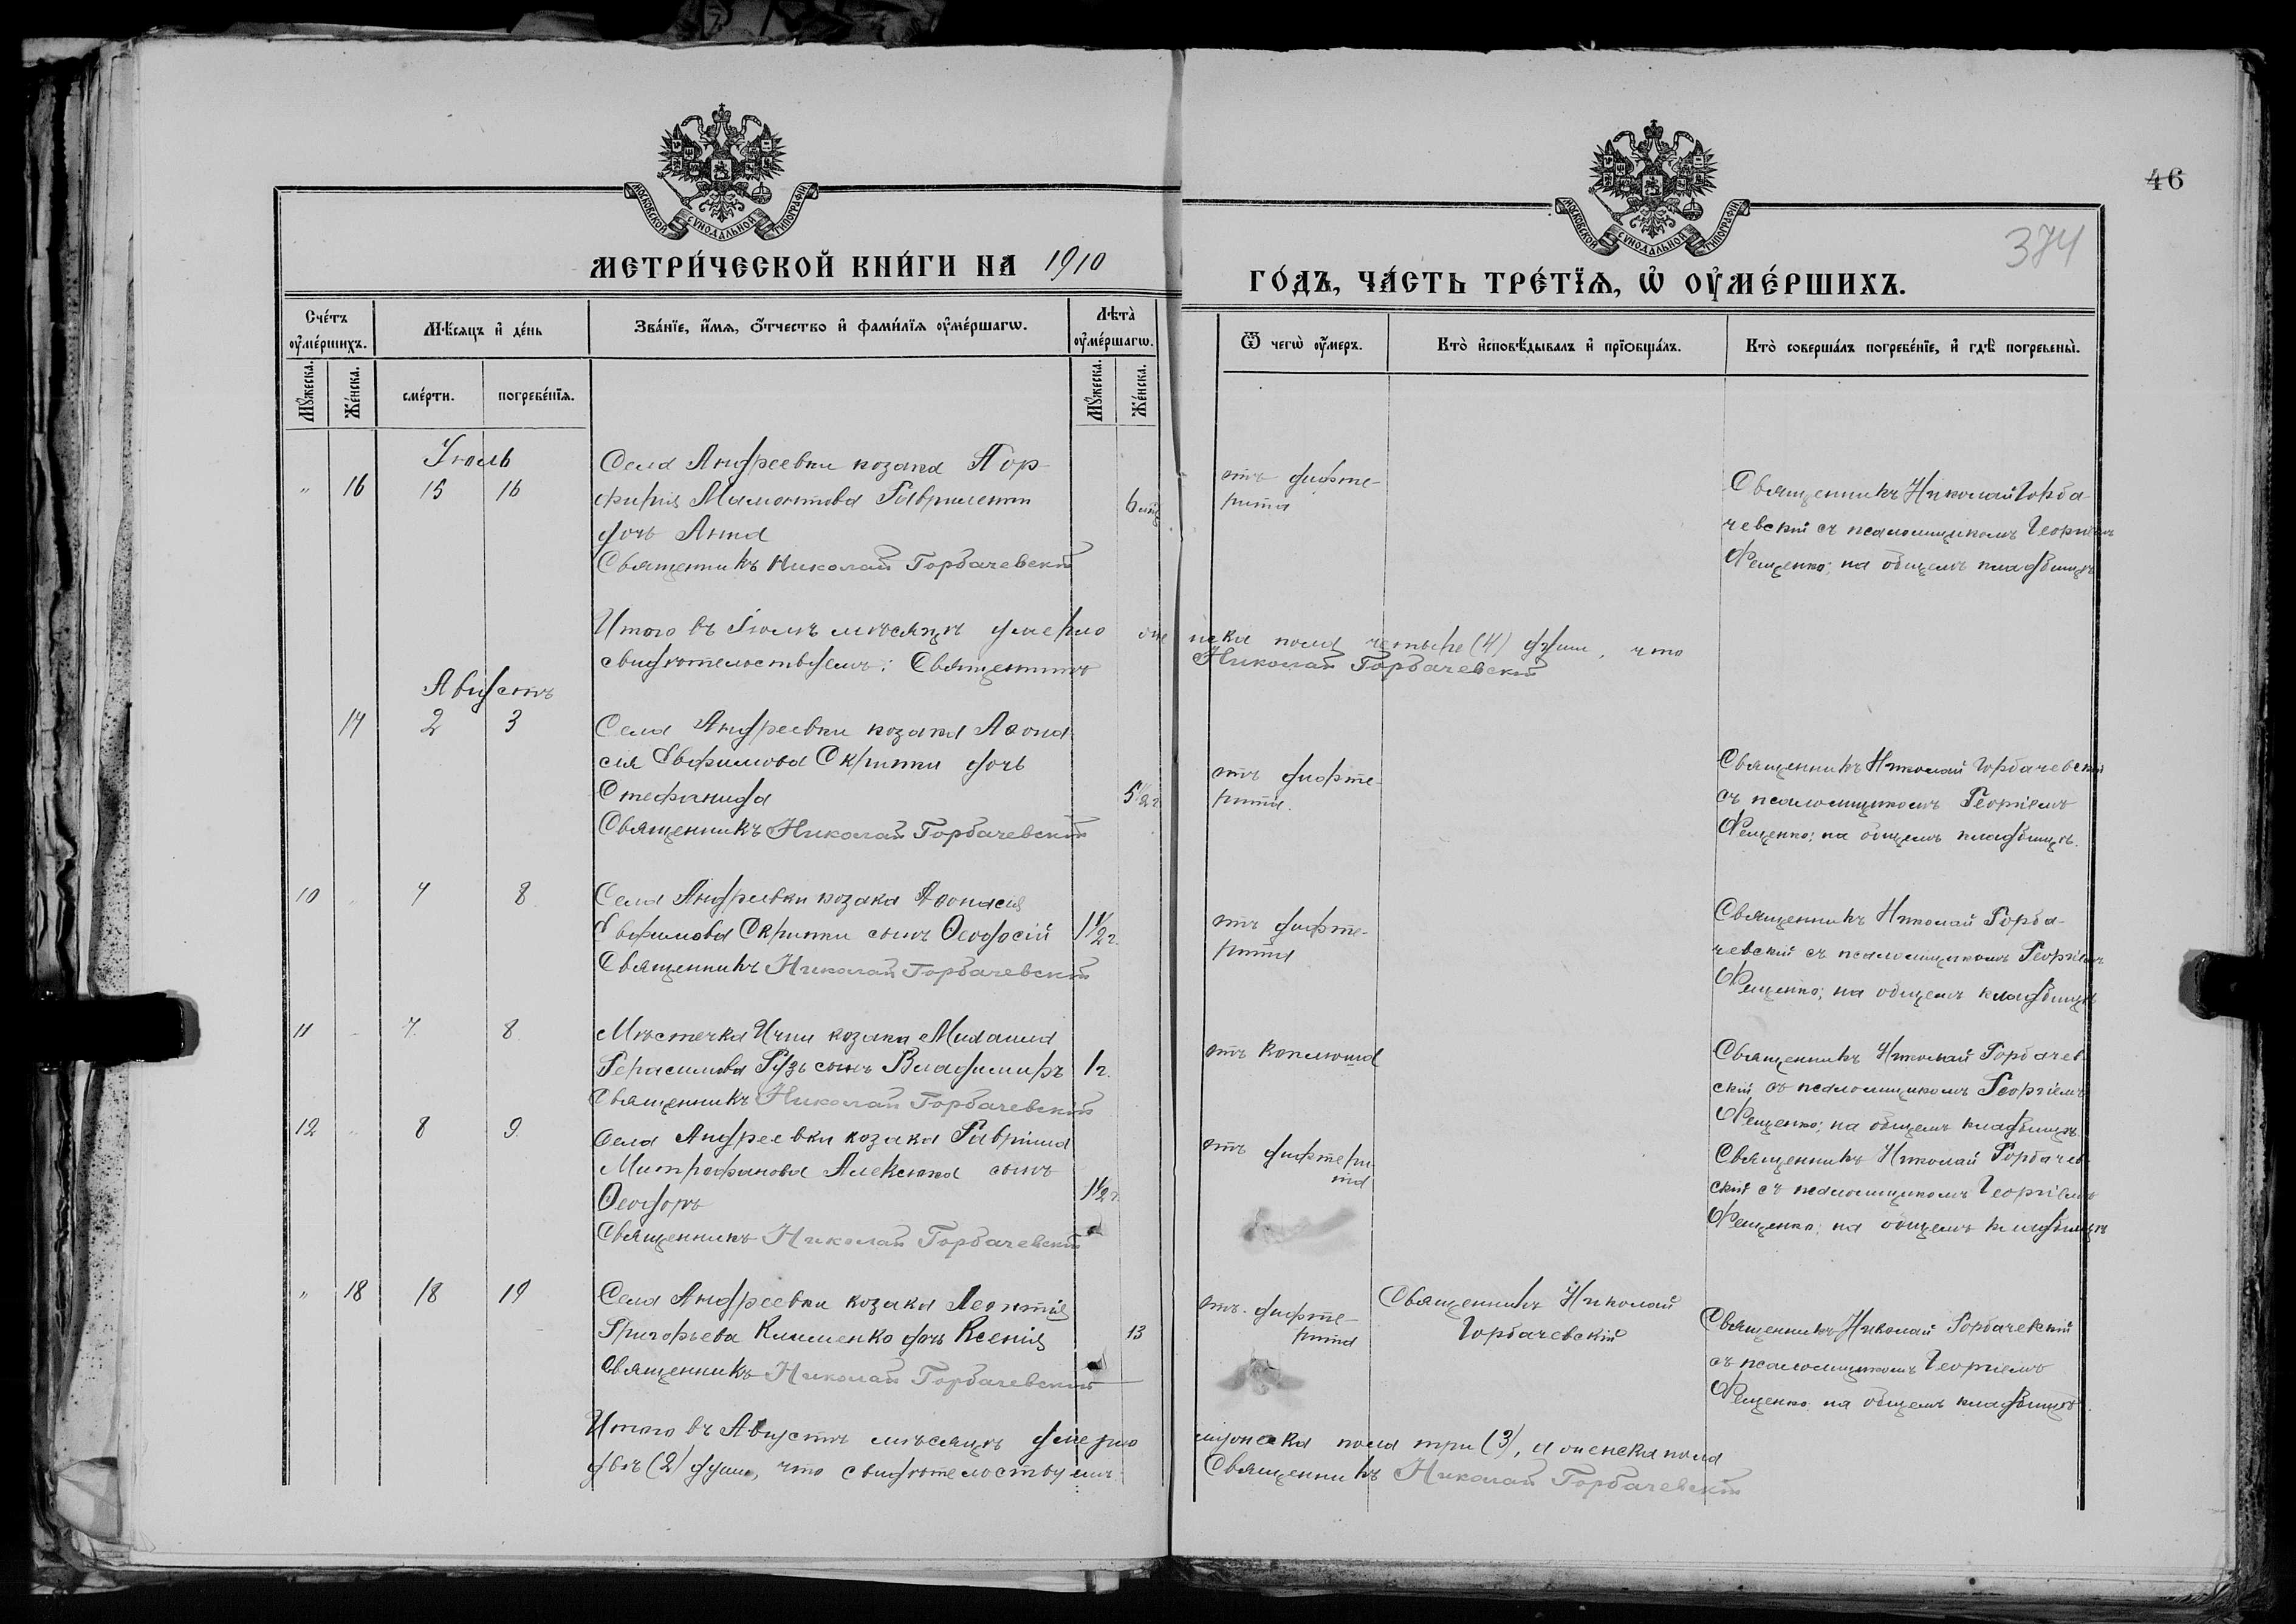 46
374
МОСКОВСКОЙ СѴНОДАЛЬНОЙ ТИПОГРАФІИ
МОСКОВСКОЙ СѴНОДАЛЬНОЙ ТИПОГРАФІИ
МЕТРИ́ЧЕСКОЙ КНИ́ГИ НА 1910
ГО́ДЪ, ЧА́СТЬ ТРЕ́ТІЯ, Ѡ҆ ОУ҆МЕ́РШИХЪ.
Сче́тъ оу҆ме́ршихъ.
Мѣ́сяцъ и҆ де́нь
Зва́нїе, и҆́мѧ, ѻ҆́тчество и҆ фами́лїѧ оу҆ме́ршагѡ.
Лѣ́та оу҆ме́ршагѡ.
Ѿ чегѡ̀ оу҆́меръ.
Кто̀ и҆сповѣ́дывалъ и҆ прїѡбща́лъ.
Кто̀ соверша́лъ погребе́нїе, и҆ гдѣ̀ погребены̀.
Мꙋ́жеска.
Же́нска.
сме́рти.
погребе́нїѧ.
Мꙋ́жеска.
Же́нска.
Іюль
" 16 15 16
Села Андреевки козака Пор-
фирія Мамонтова Гавриленки
дочь Анна
Священникъ Николай Горбачевскій
6
отъ дифте-
рита
Священникъ Николай Горба-
чевскій съ псаломщикомъ Георгіемъ
Фещенко; на общемъ кладбищѣ
Итого въ Іюлѣ мѣсяцѣ умерло женска пола четыре (4) души, что
свидѣтельствуемъ: Священникъ Николай Горбачевскій
Августъ
17 2 3
Села Андреевки козака Афона-
сія Евфимова Скрипки дочь
Стефанида
Священникъ Николай Горбачевскій
5½ г.
отъ дифте-
рита.
Священникъ Николай Горбачевскій
съ псаломщикомъ Георгіемъ
Фещенко; на общемъ кладбищѣ.
10 7 8
Села Андреевки козака Афонасія
Евфимова Скрипки сынъ Ѳеодосій
Священникъ Николай Горбачевскій
1½ г.
отъ дифте-
рита
Священникъ Николай Горба-
чевскій съ псаломщикомъ Георгіемъ
Фещенко; на общемъ кладбищѣ
11 7. 8
Мѣстечка Ични козака
Герасимова Гузь сынъ Владимиръ
Священникъ Николай Горбачевскій
1 г.
отъ коклюша
Священникъ Николай Горбачев-
скій съ псаломщикомъ Георгіемъ
Фещенко; на общемъ кладбищѣ
12 8 9
Села Андреевки козака Гавріила
Митрофанова Алексюка сынъ
Ѳеодоръ
Священникъ Николай Горбачевскій
1½ г.
отъ дифтери-
та
Священникъ Николай Горбачев-
скій съ псаломщикомъ Георгіемъ
Фещенко; на общемъ кладбищѣ
" 18 18 19
Села Андреевки козака Леонтія
Григорьева Клименко дочь Ксенія
Священникъ Николай Горбачевскій
13
отъ дифте-
рита
Священникъ Николай
Горбачевскій
Священникъ Николай Горбачевскій
съ псаломщикомъ Георгіемъ
Фещенко на общемъ кладбищѣ.
Итого въ Августѣ мѣсяцѣ умерло мужеска пола три (3), а женска пола
двѣ (2) души, что свидѣтельствуемъ: Священникъ Николай Горбачевскій